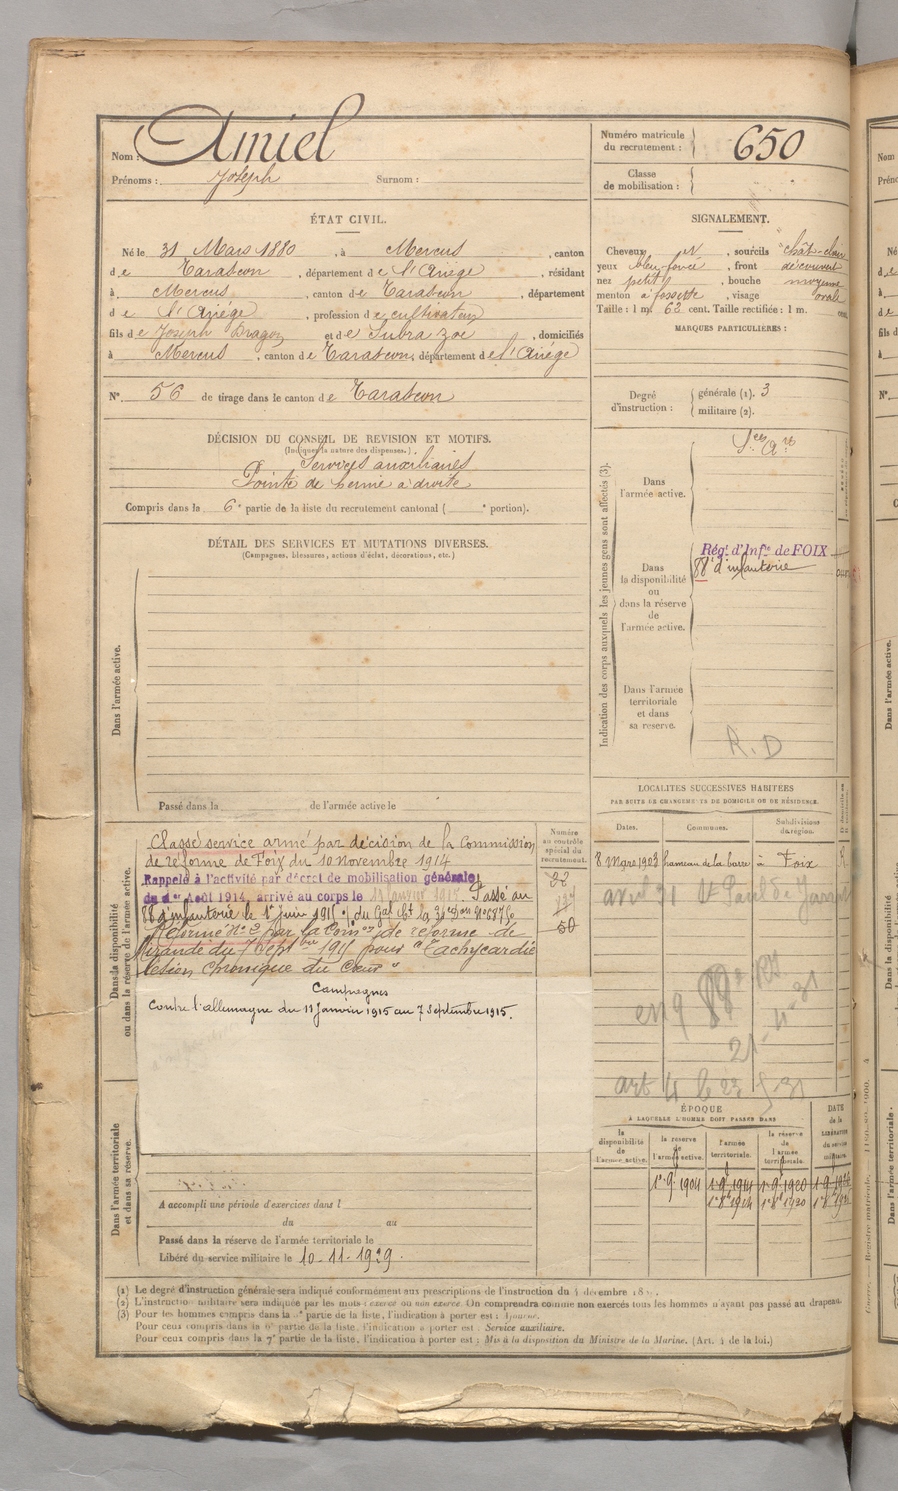 Nom : Amiel
Prénoms : Joseph Surnom :
ÉTAT CIVIL.
Né le 31 Mars 1880, à Mercus, canton
de Tarascon, département de l'Ariége, résidant
à Mercus, canton de Tarascon, département
de l'Ariége, profession de cultivateur
fils de Joseph Dragon et de Subra Zoé, domiciliés
à Mercus, canton de Tarascon, département de l'Ariége
N° 56 de tirage dans le canton de Tarascon
DÉCISION DU CONSEIL DE REVISION ET MOTIFS.
(Indiquer la nature des dispenses.)
Services auxiliaires
Pointe de hernie à droite
Compris dans la 6e partie de la liste du recrutement cantonal ( e portion).
DÉTAIL DES SERVICES ET MUTATIONS DIVERSES.
(Campagnes, blessures, actions d'éclat, décorations, etc.)
Dans l'armée active.
Passé dans la de l'armée active le
Dans la disponibilité
ou dans la réserve de l'armée active.
Numéro
au contrôle
spécial du
recrutement.
Classé service armé par décision de la Commission
de réforme de Foix du 10 novembre 1914
Rappelé à l'activité par décret de mobilisation générale
du 1er Août 1914, arrivé au corps le 11 Janvier 1915. Passé au
88 d'infanterie le 1er juin 1915
Réformé N° 2 par la Comon de réforme de
Mirande du 7 Septbre 1915 pour "Tachycardie
lésion chronique du Cœur"
60
Campagnes
Contre l'allemagne du 11 Janvier 1915 au 7 Septembre 1915.
Dans l'armée territoriale
et dans sa réserve.
A accompli une période d'exercices dans l
du au
Passé dans la réserve de l'armée territoriale le
Libéré du service militaire le 10-11-1929.
Numéro matricule
du recrutement : 650
Classe
de mobilisation :
SIGNALEMENT.
Cheveux N, sourcils chât-clair
yeux bleu-foncé, front découvert
nez petit, bouche moyenne
menton à fossette, visage ovale
Taille : 1 m. 62 cent. Taille rectifiée : 1 m. cent.
MARQUES PARTICULIÈRES :
Degré
d'instruction :
générale (1). 3
militaire (2).
Indication des corps auxquels les jeunes gens sont affectés (3).
Dans
l'armée active.
Sces Are
Dans
la disponibilité
ou
dans la réserve
de
l'armée active.
Régt d'Infie de FOIX
88e d'infanterie
Dans l'armée
territoriale
et dans
sa réserve.
R.D
LOCALITÉS SUCCESSIVES HABITÉES
PAR SUITE DE CHANGEMENTS DE DOMICILE OU DE RÉSIDENCE.
Dates. Communes. Subdivisions
de région.
8 Mars 1903 hameau de la barre à Foix R.
avril 31 St Paul de
21-4-31
art 4
ÉPOQUE
À LAQUELLE L'HOMME DOIT PASSER DANS
la
disponibilité
de
l'armée active.
la réserve
de
l'armée active.
l'armée
territoriale.
la réserve
de
l'armée
territoriale.
DATE
de la
LIBÉRATION
du service
militaire.
1er 9e 1904 1er 9e 1914 1er 9e 1920
(1) Le degré d'instruction générale sera indiqué conformément aux prescriptions de l'instruction du décembre
(2) L'instruction militaire sera indiquée par les mots : exercé ou non exercé. On comprendra comme non exercés tous les hommes n'ayant pas passé au drapeau.
(3) Pour les hommes compris dans la partie de la liste, l'indication à porter est : Ajourné.
Pour ceux compris dans la 6e partie de la liste, l'indication à porter est : Service auxiliaire.
Pour ceux compris dans la 7e partie de la liste, l'indication à porter est : Mis à la disposition du Ministre de la Marine. (Art. 4 de la loi.)